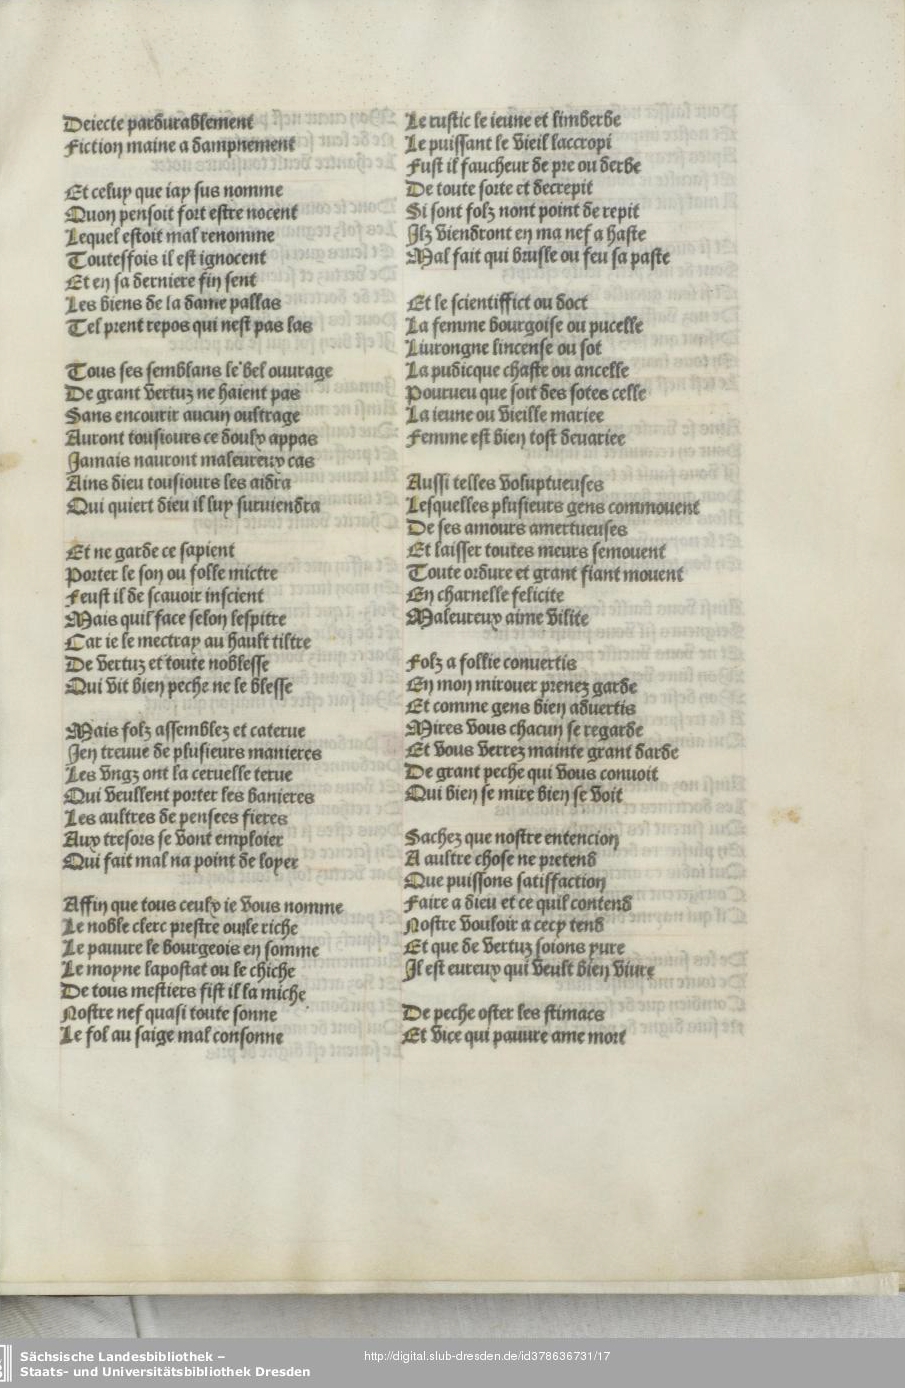 Deiecte pardurablement
Fiction maine a dampnement
Et celuy que iay sus nomme
Quon pensoit fort estre nocent
Lequel estoit mal renomme
Toutesfois il est ignocent
Et en sa derniere fin sent
Les biens de la dame pallas
Tel prent repos qui nest pas las
Tous ses semblans le bel ouurage
De grant vertuz ne haient pas
Sans encourir aucun oultrage
Auront tousiours ce doulx appas
Jamais nauront maleureux cas
Ains dieu tousiours les aidra
Qui quiert dieu il luy suruiendra
Et ne garde ce sapient
Porter le son ou folle mictre
Feust il de scauoir inscient
Mais quil face selon lespitre
Car ie le mectray au hault tiltre
De vertuz et toute noblesse
Qui vit bien peche ne le blesse
Mais folz assemblez et caterue
Jen treuue de plusieurs manieres
Les vngz ont la ceruelle terue
Qui veullent porter les banieres
Les aultres de pensees fieres
Aux tresors se vont emploier
Qui fait mal na point de loyer
Affin que tous ceulx ie vous nomme
Le noble clerc prestre ou le riche
Le pauure le bourgeois en somme
Le moyne lapostat ou le chiche
De tous mestiers fist il la miche
Nostre nef quasi toute sonne
Le fol au saige mal consonne
Le rustic le ieune et limberbe
Le puissant le vieil laccropi
Fust il faucheur de pre ou derbe
De toute sorte et decrepit
Si sont folz nont point de repit
Ilz viendront en ma nef a haste
Mal fait qui brusle ou feu sa paste
Et le scientiffict ou doct
La femme bourgoise ou pucelle
Liurongne lincense ou sot
La pudicque chaste ou ancelle
Pourueu que soit des sotes celle
La ieune ou vieille mariee
Femme est bien tost deuariee
Aussi telles voluptueuses
Lesquelles plusieurs gens commouent
De ses amours amertueuses
Et laisser toutes meurs semouent
Toute ordure et grant fiant mouent
En charnelle felicite
Maleureux aime vilite
Folz a follie conuertis
En mon mirouer prenez garde
Et comme gens bien aduertis
Mires vous chacun se regarde
Et vous verrez mainte grant darde
De grant peche qui vous conuoit
Qui bien se mire bien se voit
Sachez que nostre entencion
A aultre chose ne pretend
Que puissons satiffaction
Faire a dieu et ce quil contend
Nostre vouloir a cecy tend
Et que de vertuz soions yure
Il est eureux qui veult bien viure
De peche oster les stimacs
Et vice qui pauure ame mort
Sächsische Landesbibliothek –
Staats- und Universitätsbibliothek Dresden
http://digital.slub-dresden.de/id378636731/17